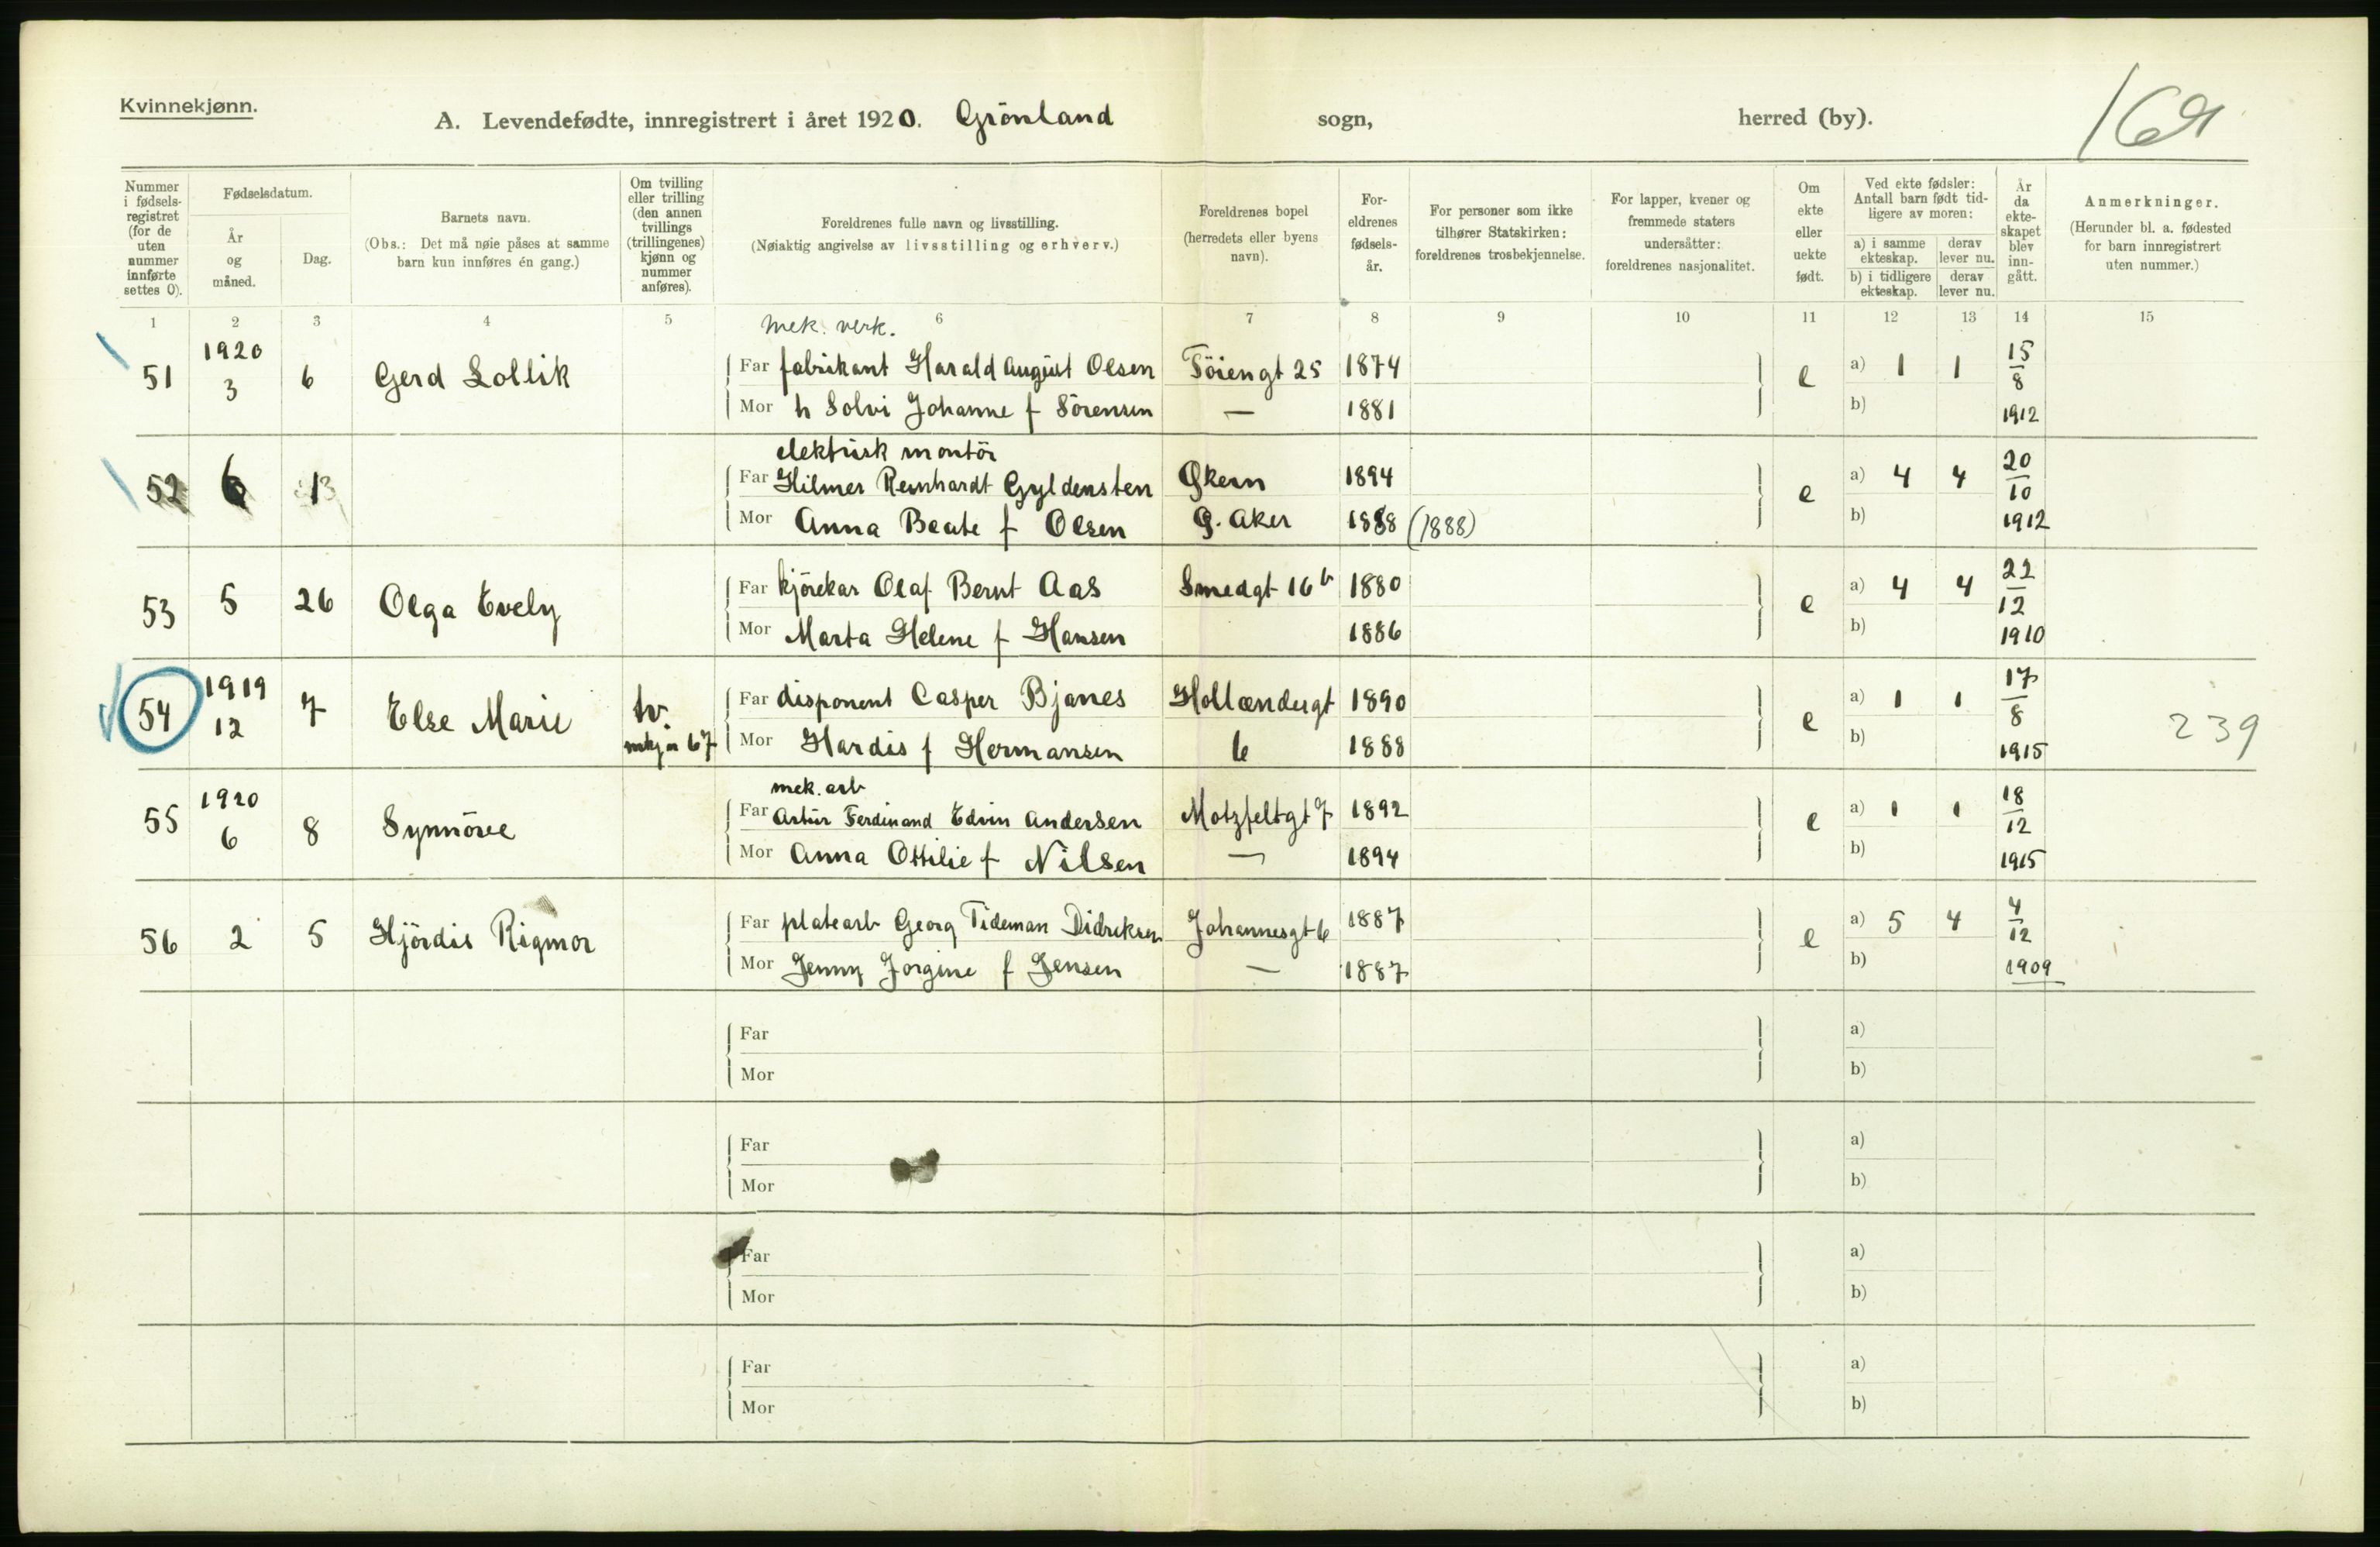 Kvinnekjønn.
A. Levendefødte, innregistrert i året 1920. Grönland sogn, herred (by).
Nummer i fødselsregistret (for de uten nummer innførte settes 0).
Fødselsdatum.
År og måned.
Dag.
Barnets navn.
(Obs.: Det må nøie påses at samme barn kun innføres én gang.)
Om tvilling eller trilling (den annen tvillings (trillingenes) kjønn og nummer anføres).
Foreldrenes fulle navn og livsstilling.
(Nøiaktig angivelse av livsstilling og erhverv.)
Foreldrenes bopel (herredets eller byens navn).
Foreldrenes fødselsår.
For personer som ikke tilhører Statskirken: foreldrenes trosbekjennelse.
For lapper, kvener og fremmede staters undersåtter: foreldrenes nasjonalitet.
Om ekte eller uekte født.
Ved ekte fødsler: Antall barn født tidligere av moren:
a) i samme ekteskap. derav lever nu.
b) i tidligere ekteskap. derav lever nu.
År da ekteskapet blev inngått.
Anmerkninger.
(Herunder bl. a. fødested for barn innregistrert uten nummer.)
1 2 3 4 5 6 7 8 9 10 11 12 13 14 15
mek. verk.
51 1920 3 6 Gerd Lollik Far fabrikant Harald August Olsen Töiengt 25 1874 e a) 1 1 15/8
Mor h Solvi Johanne f Sörensen — 1881 b) 1912
elektrisk montör
52 6 13 Far Hilmer Reinhardt Gyldensten Økern 1894 e a) 4 4 20/10
Mor Anna Beate f Olsen Ø. Aker 1888 (1888) b) 1912
53 5 26 Olga Evely Far kjörekar Olaf Bernt Aas Smedgt 16 b 1880 e a) 4 4 22/12
Mor Marta Helene f Hansen 1886 b) 1910
54 1919 12 7 Else Marie tv. mkj nr 67 Far disponent Casper Bjanes Hollændergt 1890 e a) 1 1 17/8
Mor Hardis f Hermansen 6 1888 b) 1915 239
mek. arb
55 1920 6 8 Synnöve Far Artur Ferdinand Edvin Andersen Motzfeltgt 7 1892 e a) 1 1 18/12
Mor Anna Ottilie f Nilsen — 1894 b) 1915
56 2 5 Hjördis Rigmor Far platearb Georg Tideman Didriksen Johannesgt 6 1887 e a) 5 4 4/12
Mor Jenny Jörgine f Jensen — 1887 b) 1909
Far a)
Mor b)
Far a)
Mor b)
Far a)
Mor b)
Far a)
Mor b)